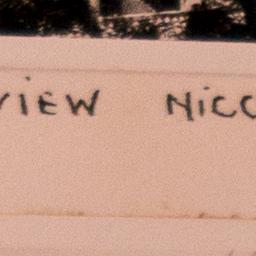 VIEW NICC